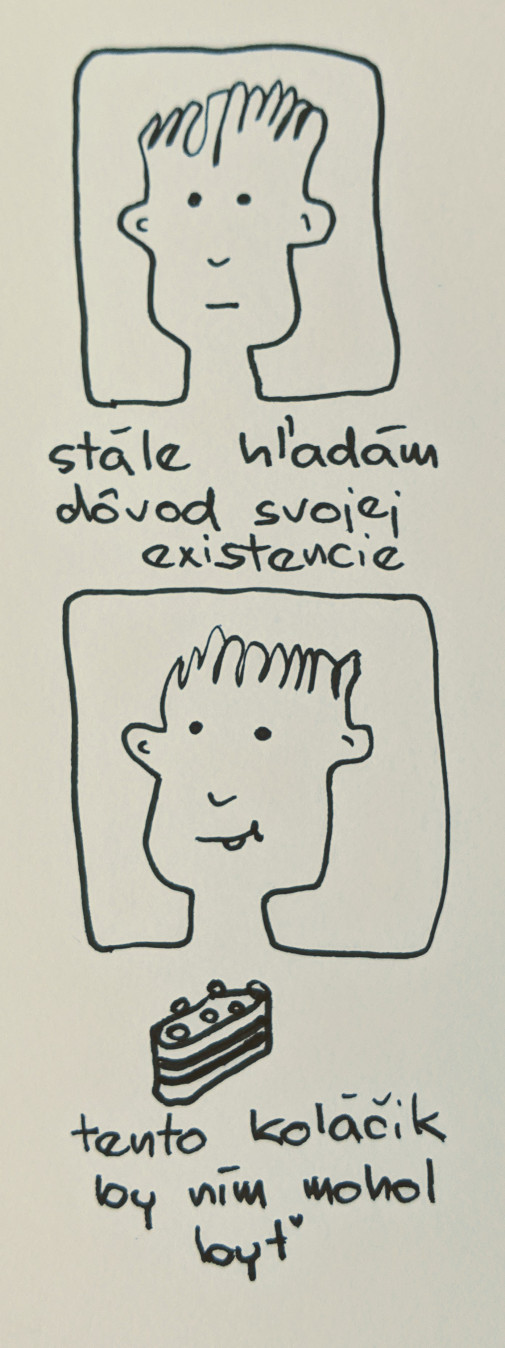 stále hľadám
dôvod svojej
existencie
tento koláčik
by ním mohol
byť